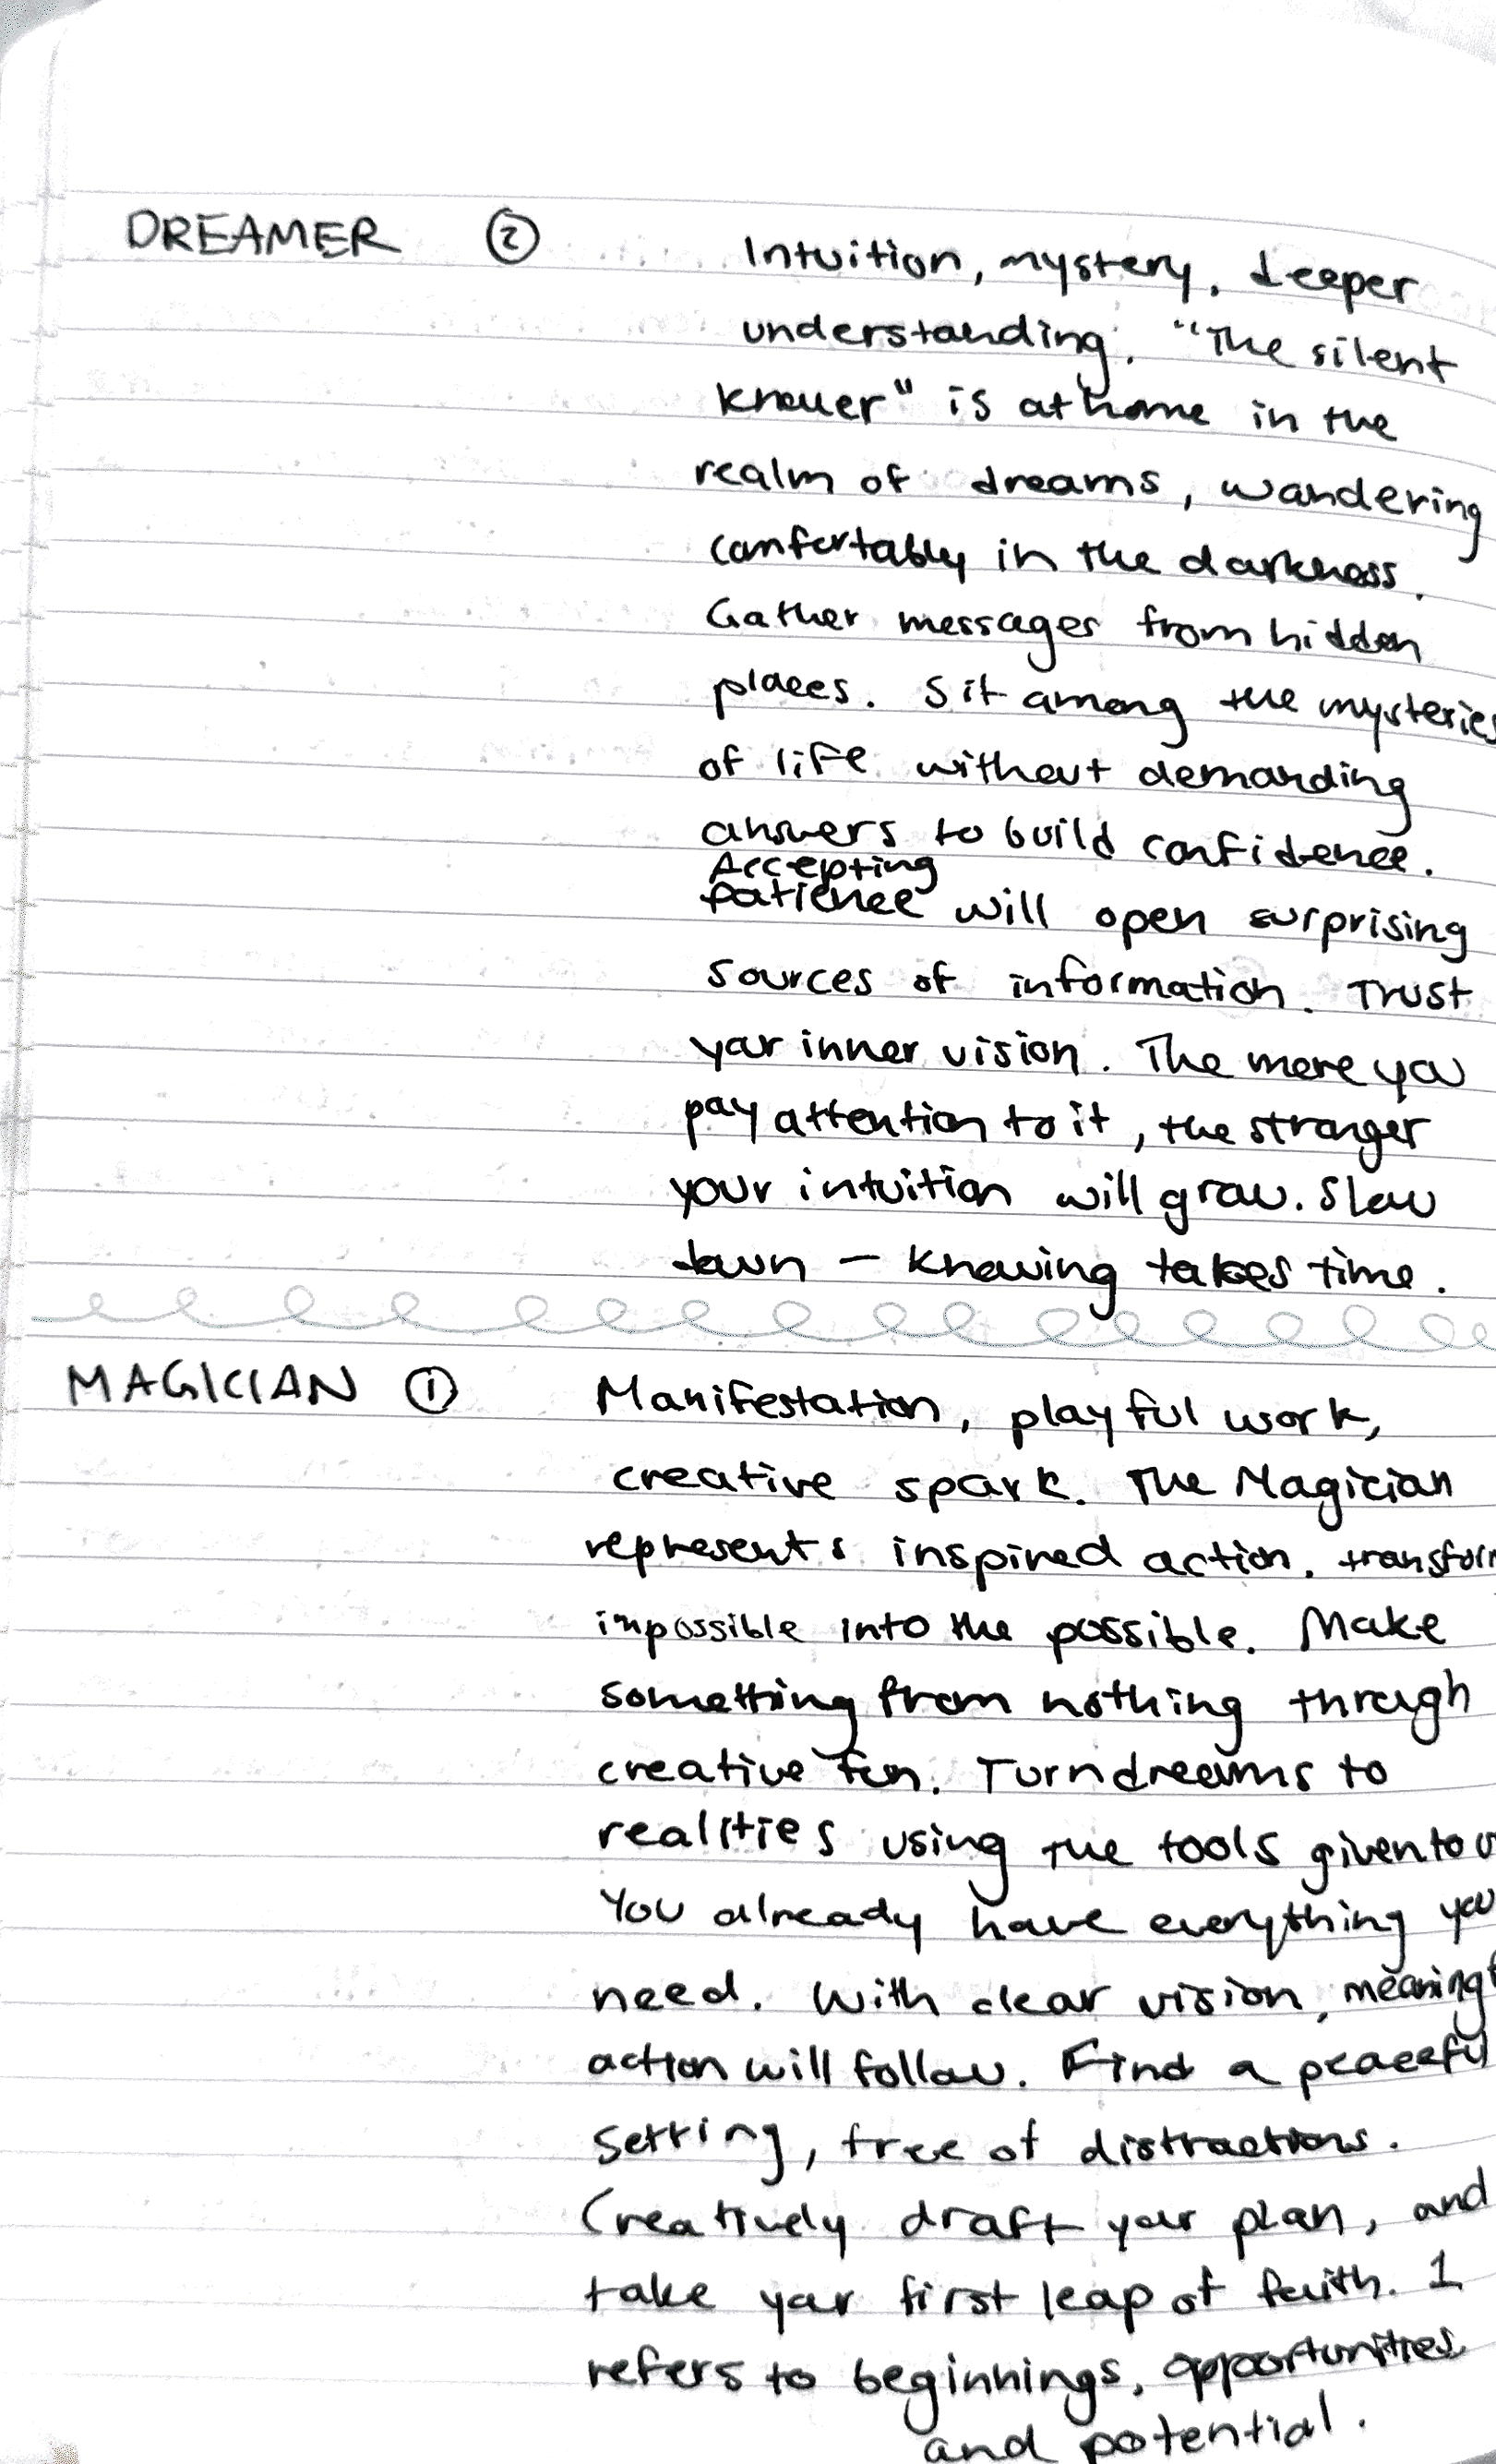 DREAMER ② Intuition, mystery, deeper
understanding. "The silent
knower" is at home in the
realm of dreams, wandering
comfortably in the darkness.
Gather messages from hidden
places. Sit among the mysteries
of life without demanding
answers to build confidence.
Accepting
patience will open surprising
sources of information. Trust
your inner vision. The more you
pay attention to it, the stronger
your intuition will grow. Slow
down — knowing takes time.
MAGICIAN ① Manifestation, playful work,
creative spark. The Magician
represents inspired action, transform
impossible into the possible. Make
something from nothing through
creative fun. Turn dreams to
realities using the tools given to
You already have everything you
need. With clear vision, meaningf
action will follow. Find a peaceful
setting, free of distractions.
Creatively draft your plan, and
take your first leap of faith. 1
refers to beginnings, opportunities
and potential.